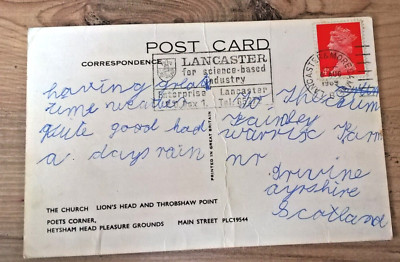 POST CARD
CORRESPONDENCE
LANCASTER
for science-based
industry
Enterprise Lancaster
Box 1. Tel.
LANCASTER
having great
time weather
quite good had
a days rain
To The
family
warrix Farm
nr
Irvine
ayrshire
Scotland
PRINTED IN GREAT BRITAIN
THE CHURCH LION'S HEAD AND THROBSHAW POINT
POETS CORNER,
HEYSHAM HEAD PLEASURE GROUNDS MAIN STREET PLC19544